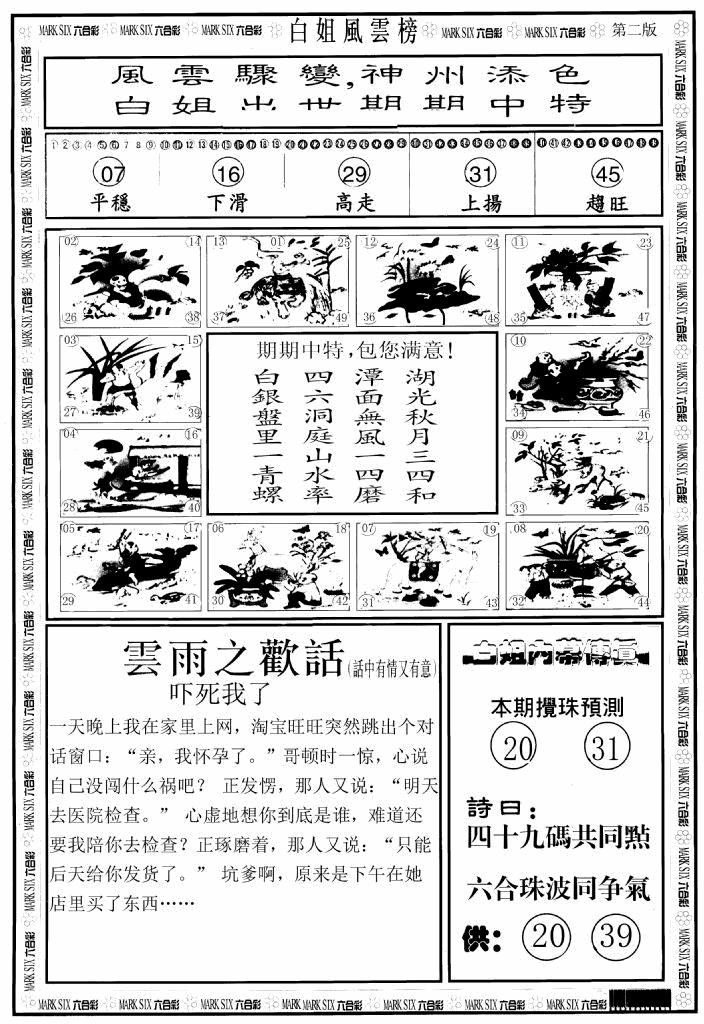 MARK SIX 六合彩 MARK SIX 六合彩 MARK SIX 六合彩 白姐風雲榜 MARK SIX 六合彩 MARK SIX 六合彩 第二版
風雲驟變,神州添色
白姐出世期期中特
07 16 29 31 45
平穩 下滑 高走 上揚 趨旺
02 14 13 01 25 12 24 11 23
26 38 37 49 36 48 35 47
03 15
27 39
04 16
28 40
期期中特,包您满意!
白 四 潭 湖
銀 六 面 光
盤 洞 無 秋
里 庭 風 月
一 山 一 三
青 水 四 四
螺 率 磨 和
10 22
34 46
09 21
33 45
05 17 06 18 07 19 08 20
29 41 30 42 31 43 32 44
雲雨之歡話(話中有情又有意)
吓死我了
一天晚上我在家里上网，淘宝旺旺突然跳出个对
话窗口：“亲，我怀孕了。”哥顿时一惊，心说
自己没闯什么祸吧？ 正发愣，那人又说：“明天
去医院检查。” 心虚地想你到底是谁，难道还
要我陪你去检查？正琢磨着，那人又说：“只能
后天给你发货了。” 坑爹啊，原来是下午在她
店里买了东西……
白姐内幕傳真
本期攪珠預測
20 31
詩曰：
四十九碼共同點
六合珠波同争氣
供： 20 39
MARK SIX 六合彩 MARK SIX 六合彩 MARK SIX 六合彩 MARK SIX 六合彩 MARK SIX 六合彩 MARK SIX 六合彩 MARK SIX 六合彩